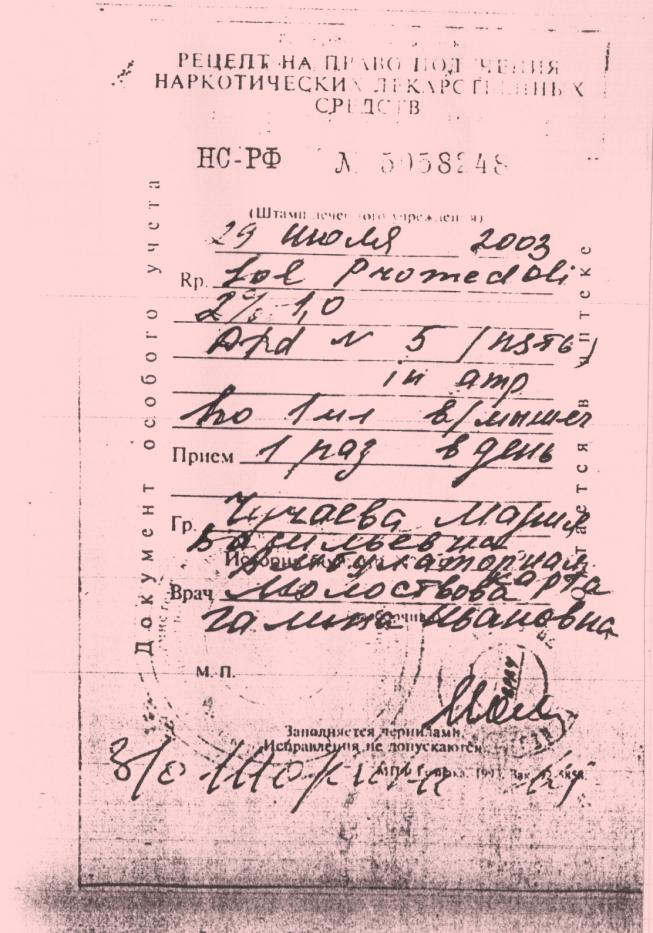 РЕЦЕПТ НА ПРАВО ПОЛУЧЕНИЯ
НАРКОТИЧЕСКИХ ЛЕКАРСТВЕННЫХ
СРЕДСТВ
НС-РФ № 5058248
(Штамп лечебного учреждения)
29 июля 2003
Rp. Sol Promedoli
2% 1,0
Dtd N 5 (пять)
in amp
по 1 мл в/мышеч
Прием 1 раз в день
Гр. Чучаева Мария
Васильевна
Амбулаторная
карта
Врач Молоствова
Галина Ивановна
М. П.
Заполняется чернилами.
Исправления не допускаются
Документ особого учета
остается в аптеке